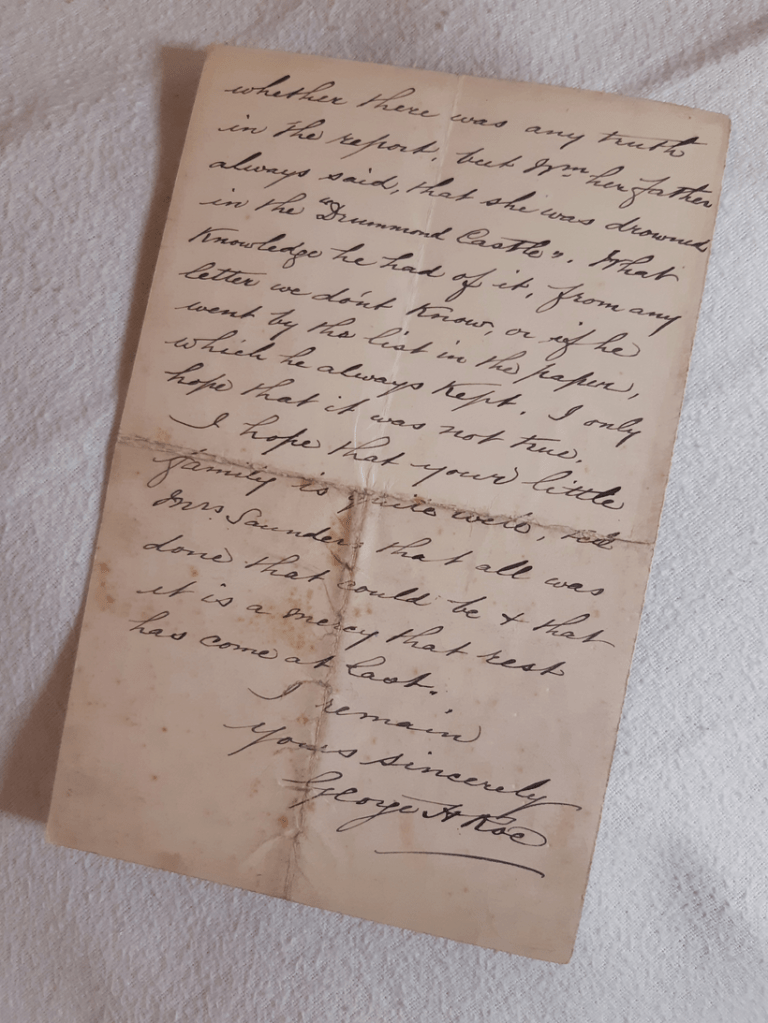 whether there was any truth
in the report, but Wm her father
always said, that she was drowned
in the "Drummond Castle". What
Knowledge he had of it, from any
letter we don't Know, or if he
went by the list in the paper,
which he always Kept. I only
hope that it was not true.
I hope that your little
family is quite well,
Mrs. Saunders that all was
done that could be & that
it is a mercy that rest
has come at last.
I remain
Yours sincerely
George H Roe